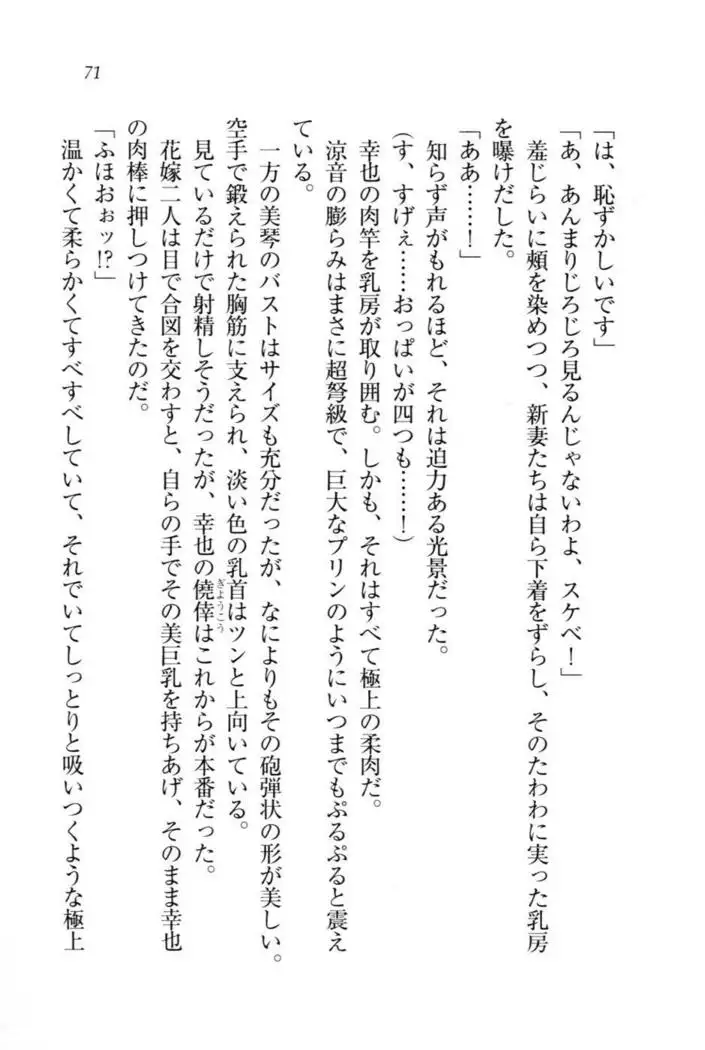 71
「は、恥ずかしいです」
「あ、あんまりじろじろ見るんじゃないわよ、スケベ！」
羞じらいに頰を染めつつ、新妻たちは自ら下着をずらし、そのたわわに実った乳房
を曝けだした。
「ああ……！」
知らず声がもれるほど、それは迫力ある光景だった。
（す、すげぇ……おっぱいが四つも……！）
幸也の肉竿を乳房が取り囲む。しかも、それはすべて極上の柔肉だ。
涼音の膨らみはまさに超弩級で、巨大なプリンのようにいつまでもぷるぷると震え
ている。
一方の美琴のバストはサイズも充分だったが、なによりもその砲弾状の形が美しい。
空手で鍛えられた胸筋に支えられ、淡い色の乳首はツンと上向いている。
見ているだけで射精しそうだったが、幸也の僥倖はこれからが本番だった。
ぎようこう
花嫁二人は目で合図を交わすと、自らの手でその美巨乳を持ちあげ、そのまま幸也
の肉棒に押しつけてきたのだ。
「ふほおぉッ!?」
温かくて柔らかくてすべすべしていて、それでいてしっとりと吸いつくような極上